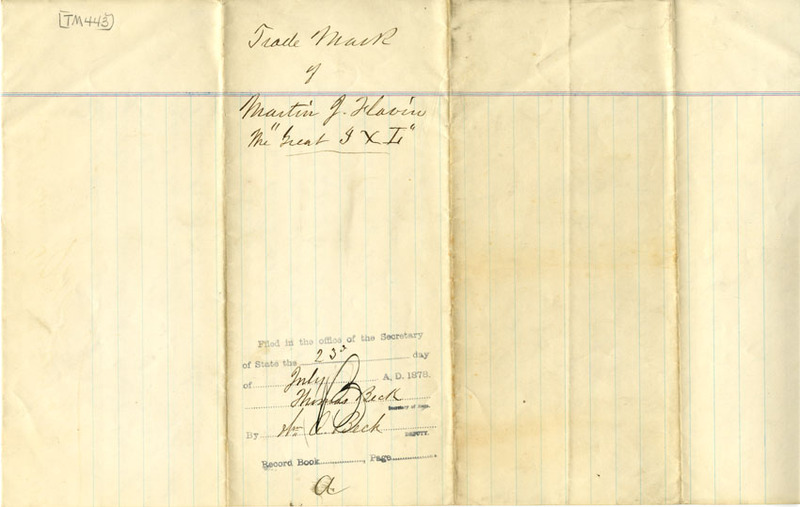 [TM443]
Trade Mark
of
Martin J. Flavin
The "Great I X L"
Filed in the office of the Secretary
of State the 23d day
of July A. D. 1878.
Thomas Beck
Secretary of State.
By Wm A. Beck
DEPUTY.
Record Book , Page
a